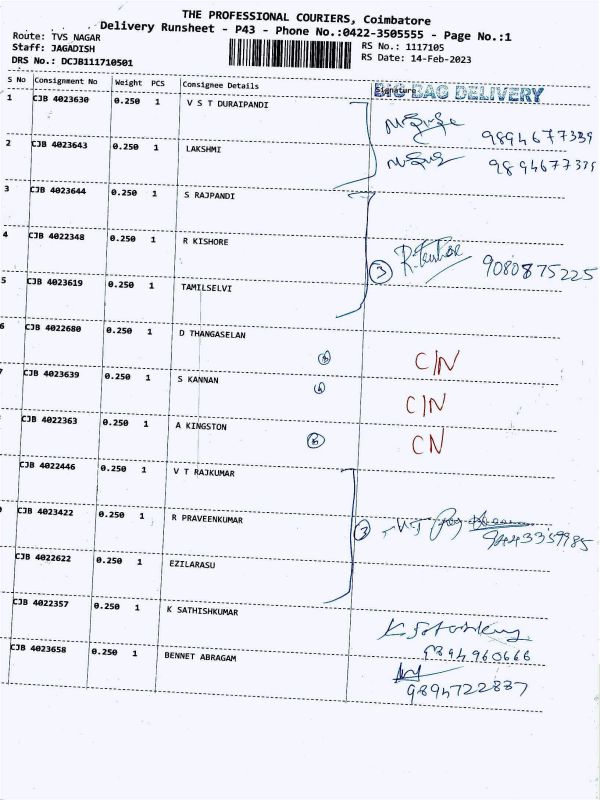 THE PROFESSIONAL COURIERS, Coimbatore
Delivery Runsheet - P43 - Phone No.:0422-3505555 - Page No.:1
Route: TVS NAGAR
Staff: JAGADISH
DRS No.: DCJB111710501
RS No.: 1117105
RS Date: 14-Feb-2023
S No Consignment No Weight PCS Consignee Details Signature
BIG BAG DELIVERY
1 CJB 4023630 0.250 1 V S T DURAIPANDI
9894677339
2 CJB 4023643 0.250 1 LAKSHMI
9894677339
3 CJB 4023644 0.250 1 S RAJPANDI
4 CJB 4022348 0.250 1 R KISHORE
3 9080875225
5 CJB 4023619 0.250 1 TAMILSELVI
6 CJB 4022680 0.250 1 D THANGASELAN
C/N
CJB 4023639 0.250 1 S KANNAN
C/N
CJB 4022363 0.250 1 A KINGSTON
CN
CJB 4022446 0.250 1 V T RAJKUMAR
CJB 4023422 0.250 1 R PRAVEENKUMAR
9443359985
CJB 4022622 0.250 1 EZILARASU
CJB 4022357 0.250 1 K SATHISHKUMAR
9894960666
CJB 4023658 0.250 1 BENNET ABRAGAM
9894722837